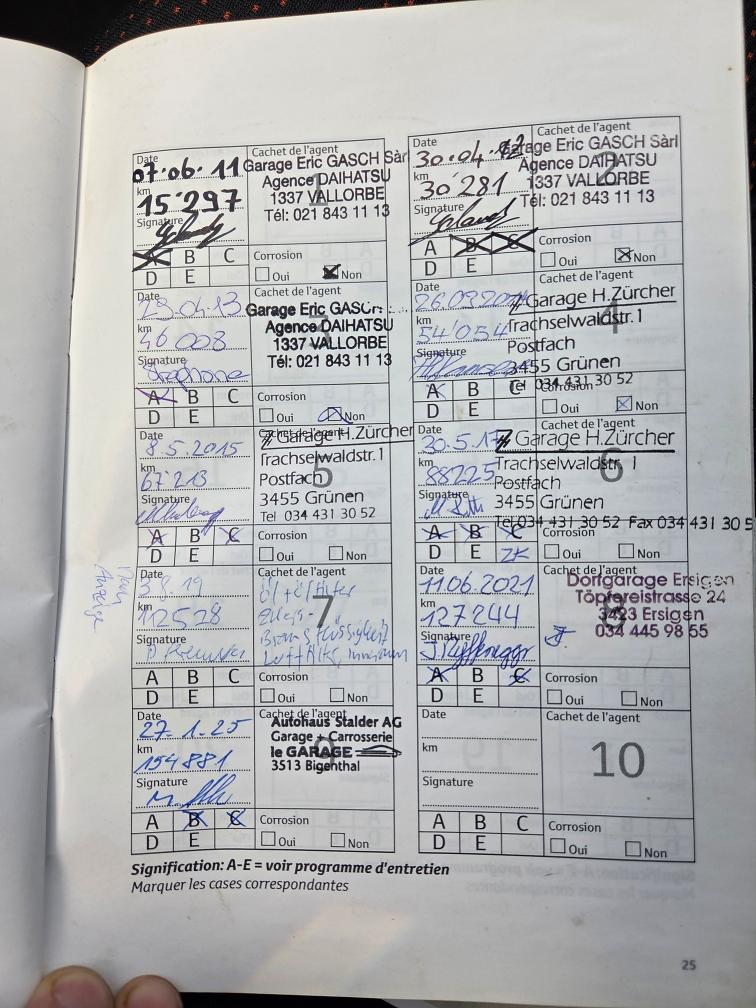 Date
07.06.11
km
15'297
Signature
Cachet de l'agent
Garage Eric GASCH Sàrl
Agence DAIHATSU
1337 VALLORBE
Tél: 021 843 11 13
1
A B C
D E
Corrosion
Oui Non
Date
30.04.12
km
30'281
Signature
Cachet de l'agent
Garage Eric GASCH Sàrl
Agence DAIHATSU
1337 VALLORBE
Tél: 021 843 11 13
2
A B C
D E
Corrosion
Oui Non
Date
23.04.13
km
46 008
Signature
Cachet de l'agent
Garage Eric GASCH
Agence DAIHATSU
1337 VALLORBE
Tél: 021 843 11 13
3
A B C
D E
Corrosion
Oui Non
Date
26.09.2014
km
54'054
Signature
Cachet de l'agent
Garage H.Zürcher
Trachselwaldstr. 1
Postfach
3455 Grünen
Tel 034 431 30 52
4
A B C
D E
Corrosion
Oui Non
Date
8.5.2015
km
67213
Signature
Cachet de l'agent
Garage H.Zürcher
Trachselwaldstr. 1
Postfach
3455 Grünen
Tel 034 431 30 52
5
A B C
D E
Corrosion
Oui Non
Date
30.5.17
km
88225
Signature
Cachet de l'agent
Garage H.Zürcher
Trachselwaldstr. 1
Postfach
3455 Grünen
Tel 034 431 30 52 Fax 034 431 30 5
6
A B C
D E ZK
Corrosion
Oui Non
Date
3.8.19
km
112528
Signature
Cachet de l'agent
Öl + Ölfilter
Bremsflüssigkeit
Luftfilter, Innenraum
7
A B C
D E
Corrosion
Oui Non
Anzeige
Date
11.06.2021
km
127244
Signature
Cachet de l'agent
Dorfgarage Ersigen
Töpfereistrasse 24
3423 Ersigen
034 445 98 55
8
A B C
D E
Corrosion
Oui Non
Date
27.1.25
km
154881
Signature
Cachet de l'agent
Autohaus Stalder AG
Garage + Carrosserie
le GARAGE
3513 Bigenthal
9
A B C
D E
Corrosion
Oui Non
Date
km
Signature
Cachet de l'agent
10
A B C
D E
Corrosion
Oui Non
Signification: A-E = voir programme d'entretien
Marquer les cases correspondantes
25